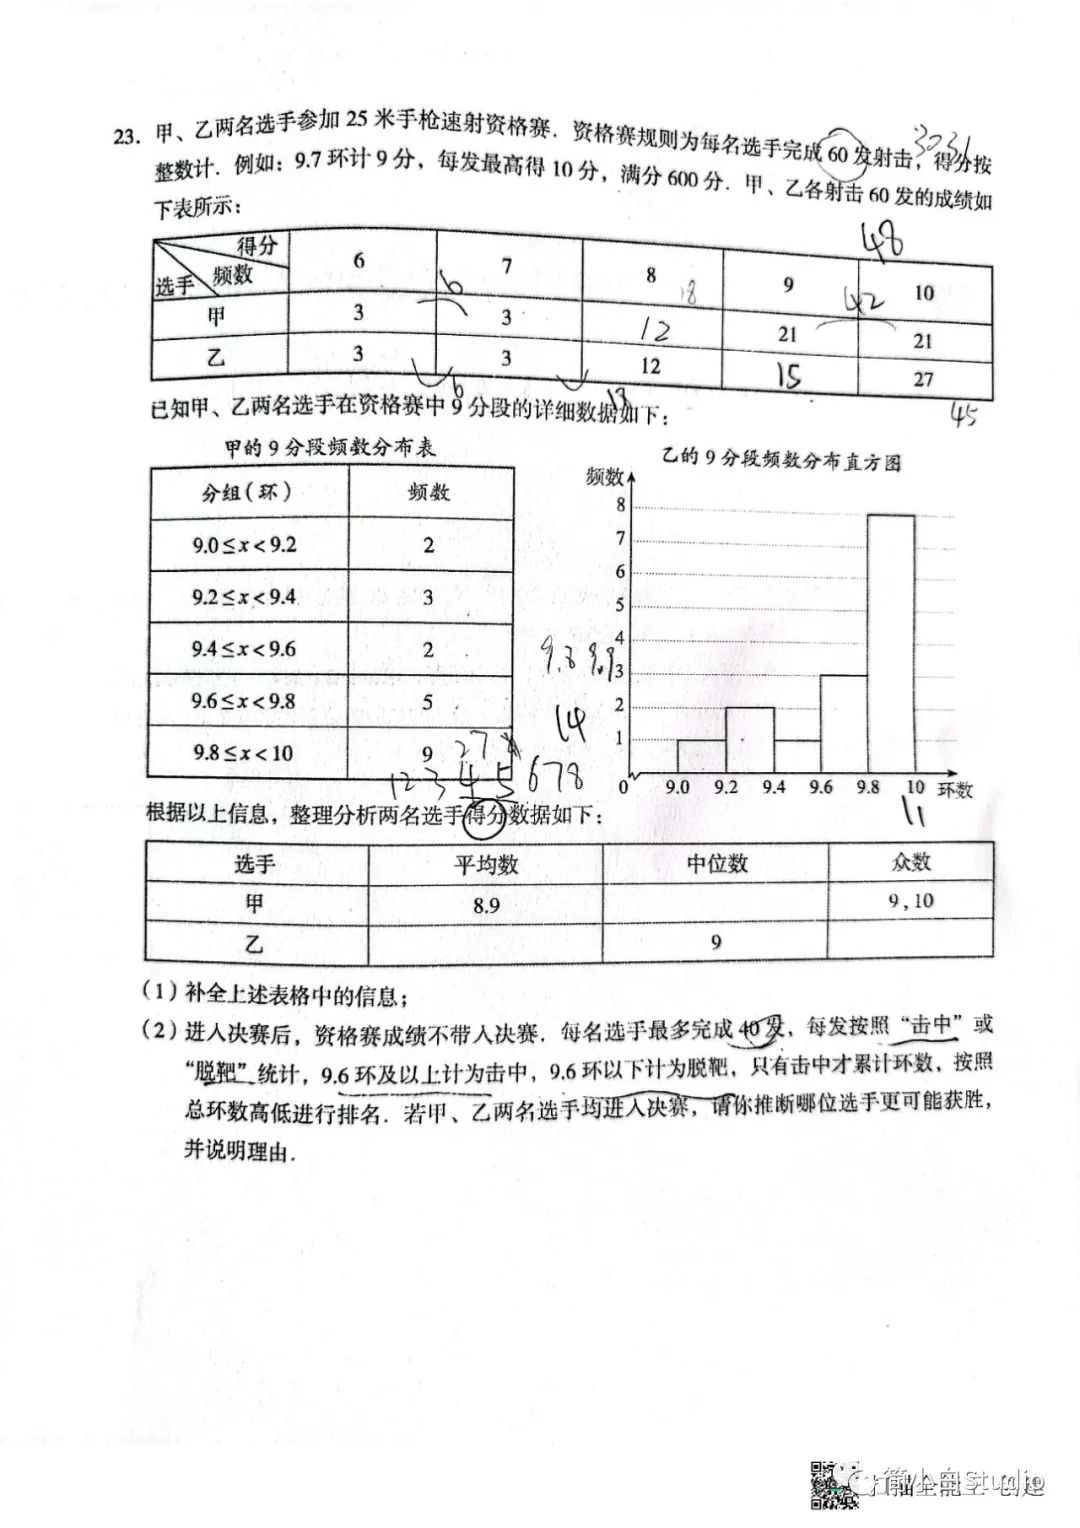 23. 甲、乙两名选手参加 25 米手枪速射资格赛．资格赛规则为每名选手完成 60 发射击，得分按
整数计．例如：9.7 环计 9 分，每发最高得 10 分，满分 600 分．甲、乙各射击 60 发的成绩如
下表所示：
3031
48
得分 频数 选手 6 7 8 9 10
6 18 42
甲 3 3 12 21 21
乙 3 3 12 15 27
6 18 45
已知甲、乙两名选手在资格赛中 9 分段的详细数据如下：
甲的 9 分段频数分布表
分组（环） 频数
9.0≤x<9.2 2
9.2≤x<9.4 3
9.4≤x<9.6 2
9.6≤x<9.8 5
9.8≤x<10 9
乙的 9 分段频数分布直方图
频数
8
7
6
5
4
3
2
1
0 9.0 9.2 9.4 9.6 9.8 10 环数
9.8 9.9
14
27
1 2 3 4 5 6 7 8
11
根据以上信息，整理分析两名选手得分数据如下：
选手 平均数 中位数 众数
甲 8.9 9，10
乙 9
（1）补全上述表格中的信息；
（2）进入决赛后，资格赛成绩不带入决赛．每名选手最多完成 40 发，每发按照“击中”或
“脱靶”统计，9.6 环及以上计为击中，9.6 环以下计为脱靶，只有击中才累计环数，按照
总环数高低进行排名．若甲、乙两名选手均进入决赛，请你推断哪位选手更可能获胜，
并说明理由．
简小白Studio
创建